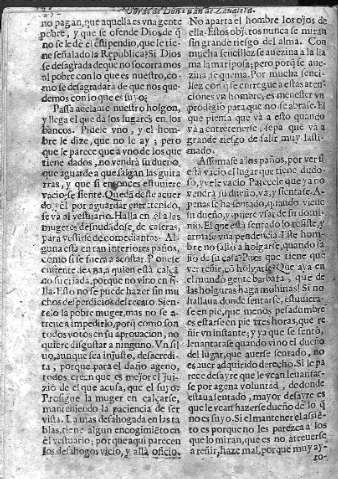 Obras de Don Iuan de Zaualeta.
no pagan, que aquella es vna gente
pobre, y que se ofende Dios de q̃
no se le dè el estipendio, que le tie-
ne señalado la Republica? Si Dios
se desagrada de que no socorramos
al pobre con lo que es nuestro, co-
mo se desagradarà de que nos que-
demos con lo que es suyo?
Passa adelante nuestro holgon,
y llega el que da los lugares en los
bancos. Pidele vno, y el hom-
bre le dize, que no le ay; pero
que le parece que a vno de los que
tiene dados, no vendrà su dueño,
que aguarde a que salgan las guita
rras, y que si entonces estuuiere
vacio, se siente. Quedã de este acuer
do, y èl por aguardar entretenido,
se va al vestuario. Halla en èl a las
mugeres desnudandose, de caseras,
para vestirse de comediantas. Al-
guna està en tan interiores paños,
como si se fuera a acostar. Ponese
enfrente de vna, a quien està calçã
do su criada, porque no vino en si-
lla. Esto no se puede hazer sin mu
chos desperdicios del recato. Sien-
telo la pobre muger, mas no se a-
treue a impedirlo, porq̃ como son
todos votos en su aprobacion, no
quiere disgustar a ninguno. Vn sil-
uo, aunque sea injusto, desacredi-
ta, porque para el daño ageno,
todos creen que es mejor el jui-
zio de el que acusa, que el suyo.
Prosigue la muger en calçarse,
manteniendo la paciencia de ser
vista. La mas desahogada en las ta
blas, tiene algun encogimiẽto en
el vestuario; porque aqui parecen
los desahogos vicio, y allà oficio.
No aparta el hombre los ojos de
ella. Estos objetos nunca se miran
sin grande riesgo del alma. Con
mucha sencillez se auezina a la lla
ma la mariposa; pero porq̃ se aue-
zina se quema. Por mucha senci-
llez con que entregue a estas aten-
ciones vn hombre, es menester vn
prodigio para que no se abrase. El
que piensa que va a esto quando
va a entretenerse, sepa que va a
grande riesgo de salir muy lasti-
mado.
Assomase a los paños, por ver si
està vacio el lugar que tiene dudo-
so, y vele vacio. Parecele que ya no
vendrà su dueño, và, y sientase. A-
penas se ha sentado, quando viene
su dueño, y quiere vsar de su domi-
nio. El que està sentado lo resiste, y
armase vna pendencia. Este hom-
bre no saliò a holgarse, quando sa-
liò de su casa? Pues que tiene que
ver reñir, cõ holgarse? Que aya en
el mundo gente barbara, que de
las holguras haga mohinas! Si no
hallaua donde sentarse, estuuiera-
se en pie, que menos pesadumbre
es estarse en pie tres horas, que re
ñir vn instante; y ya que se sentò,
leuantarase quando vino el dueño
del lugar, que auerse sentado, no
es auer adquirido derecho. Si le pa
rece desayre que le vean leuantar-
se por agena voluntad, de donde
estaua sentado, mayor desayre es
que le vean hazerse dueño de lo q̃
no es suyo. Si el mantener el assiẽ-
to es porque no les parezca a los
que lo miran, que es no atreuerse
a reñir, haze mal, porque muy ay-
ro-